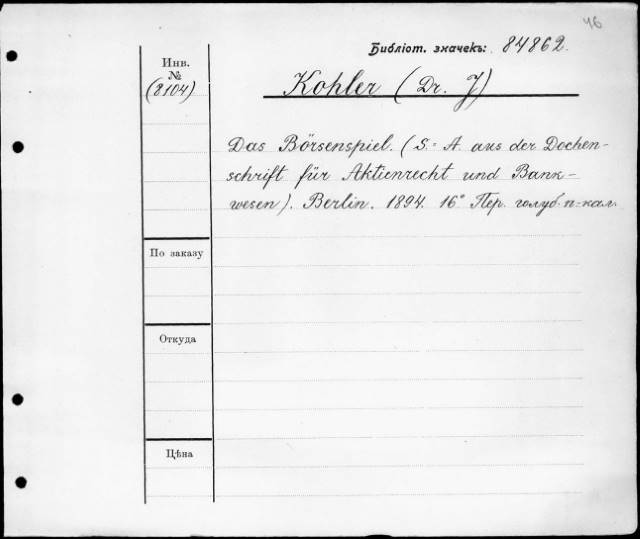 46
Библіот. значекъ: 84862.
Инв.
№
(8104)
Kohler (Dr. J)
Das Börsenspiel. (S.=A aus der Dochen-
schrift für Aktienrecht und Bank-
wesen). Berlin. 1894. 16° Пер. голуб. п-кал.
По заказу
Откуда
Цѣна